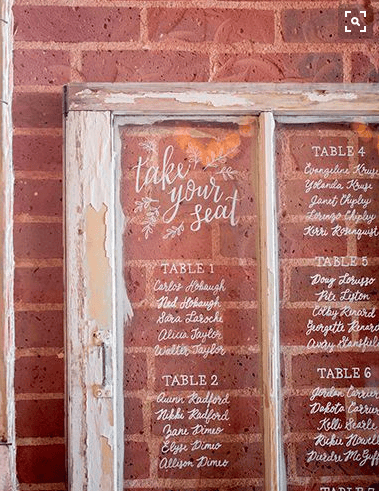 take
your
seat
TABLE 1
Carlos Hobaugh
Ned Hobaugh
Sara Laroche
Alicia Taylor
Walter Taylor
TABLE 2
Quinn Radford
Nikki Radford
Zane Dimeo
Elyse Dimeo
Allison Dimeo
TABLE 4
Evangeline Kruse
Yolanda Kruse
Janet Chipley
Lorenzo Chipley
Kerri Rosenquist
TABLE 5
Doug Lorusso
Pete Liston
Colby Renard
Georgette Renard
Avery Stansfield
TABLE 6
Jordan Carrier
Dakota Carrier
Kelli Searle
Rickie
Deirdre McGuff
TABLE 7